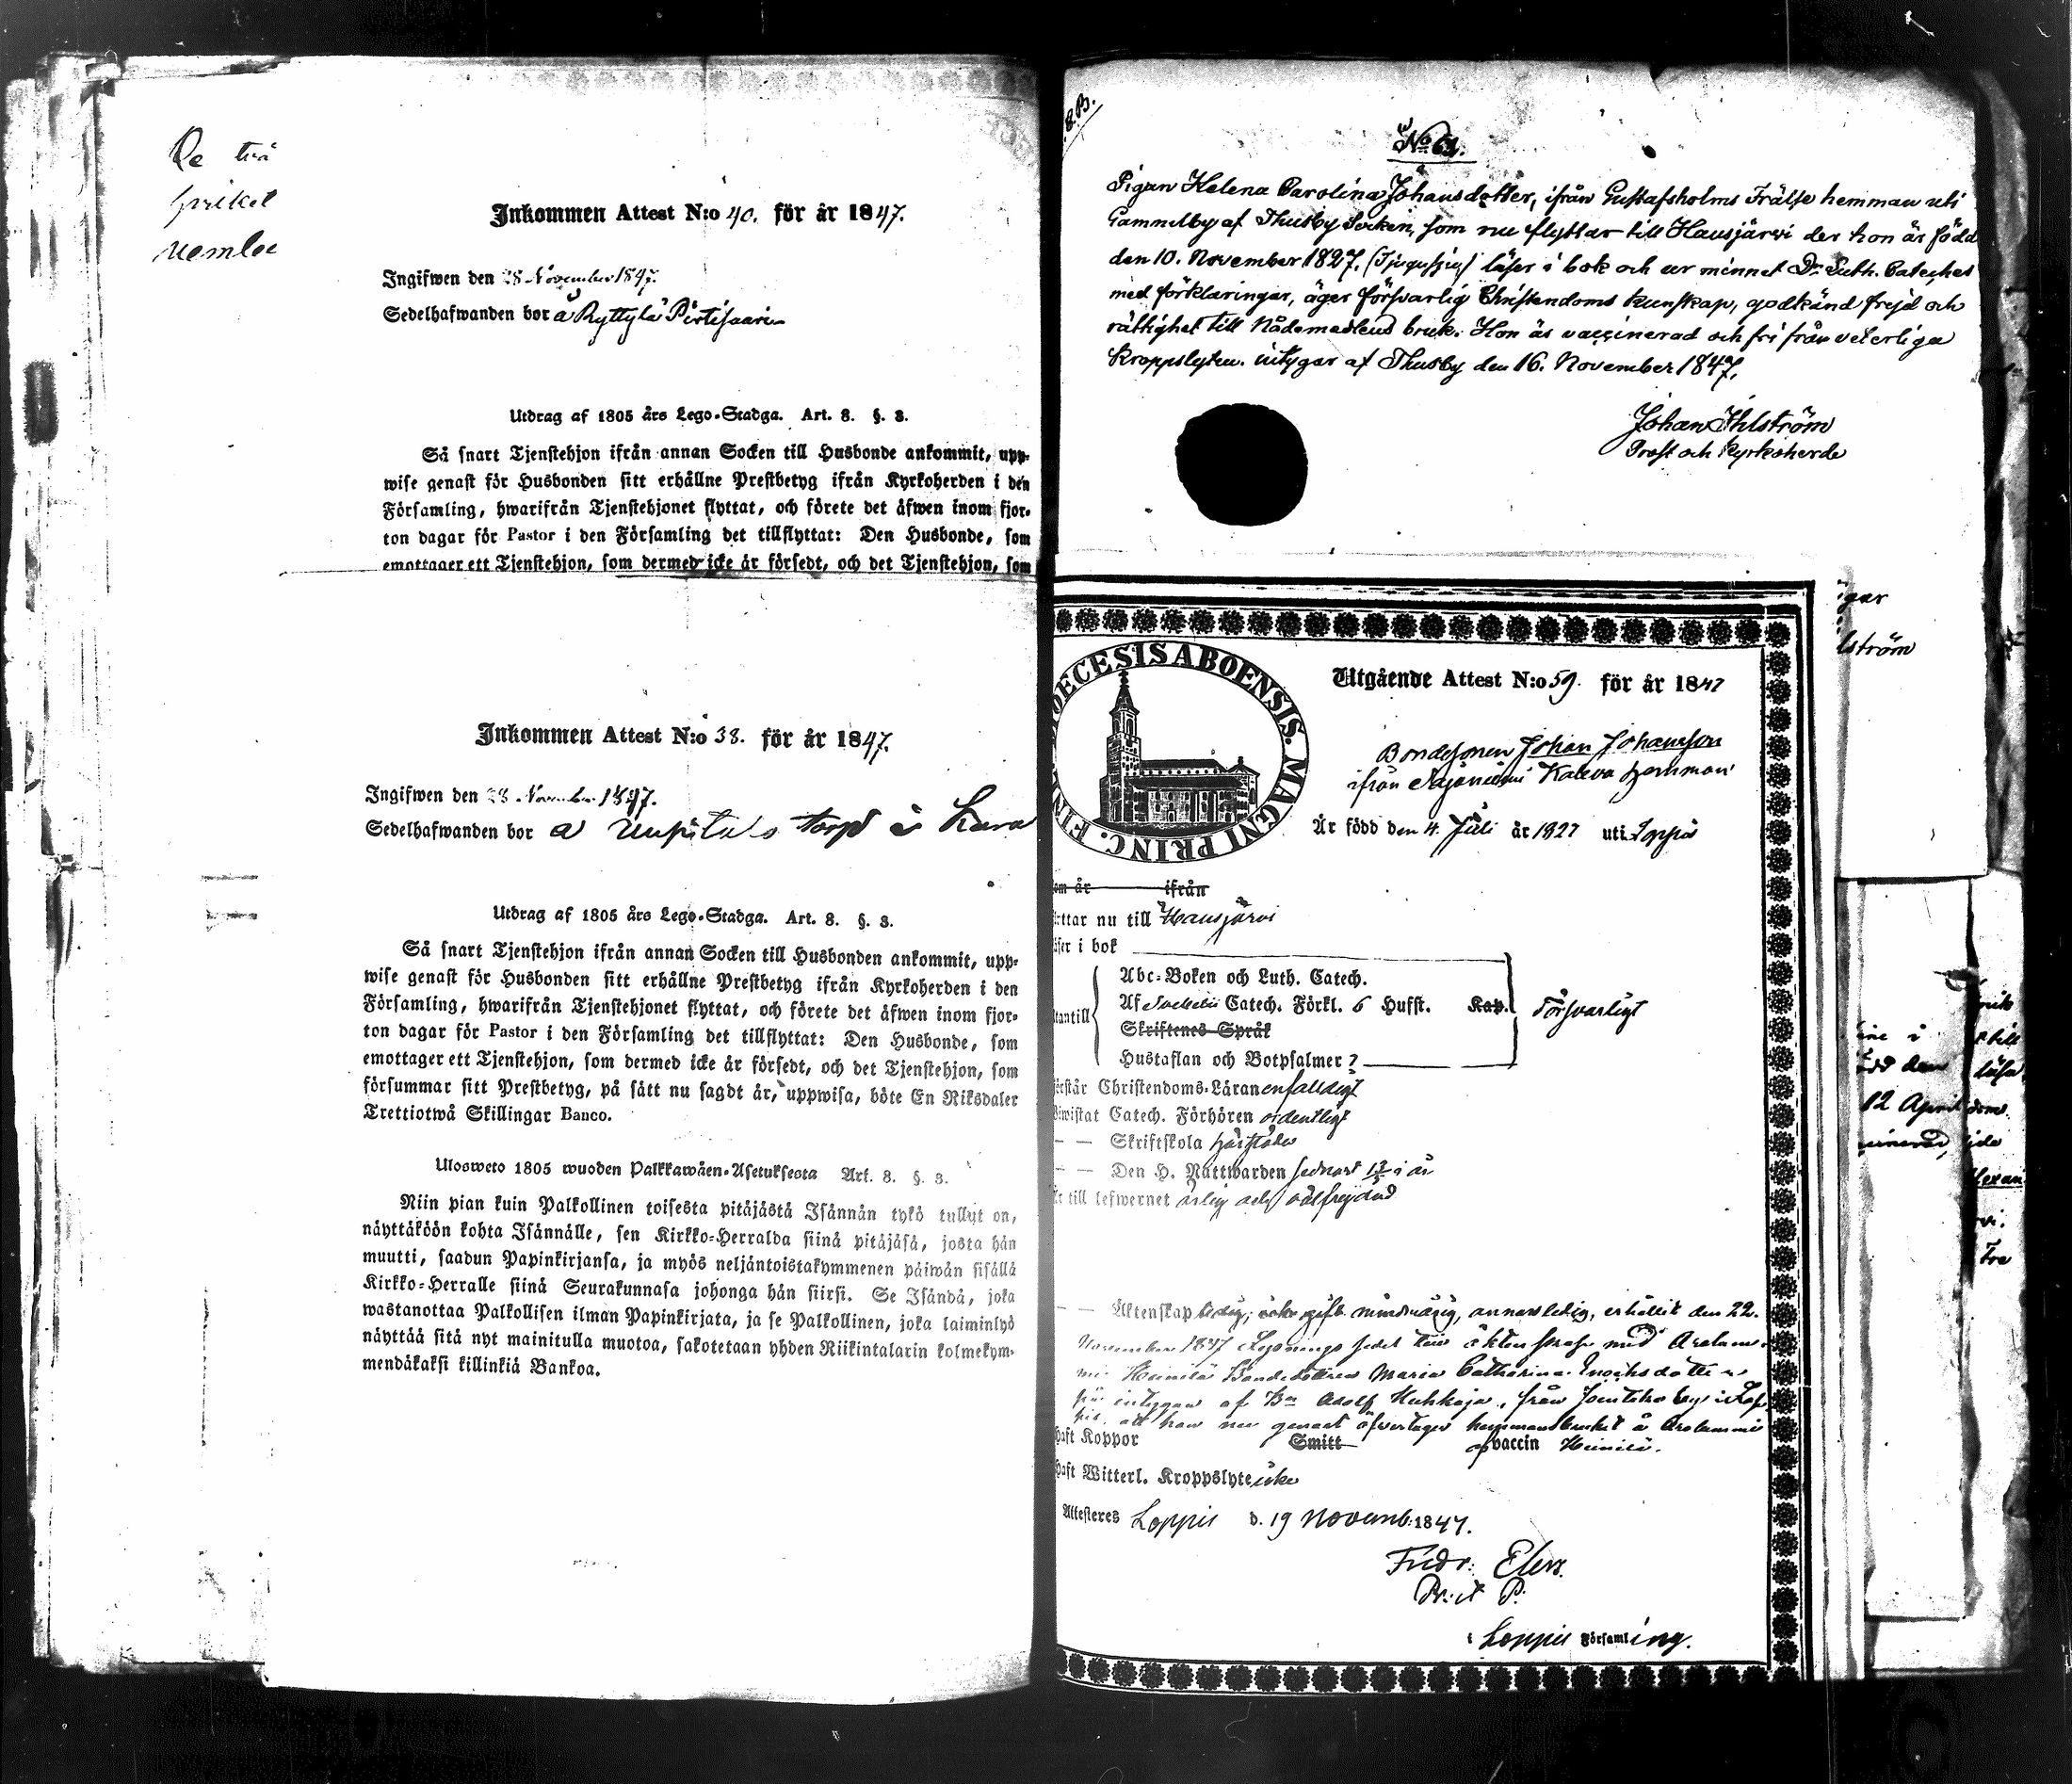 De två
priket
nemln
Inkommen Attest N:o 40. för år 1847.
Ingifwen den 28 November 1847.
Sedelhafwanden bor å Ryttylä Pirtisaari
Utdrag af 1805 års Lego-Stadga. Art. 8. §. 3.
Så snart Tjenstehjon ifrån annan Socken till Husbonde ankommit, upp-
wise genast för Husbonden sitt erhållne Prestbetyg ifrån Kyrkoherden i den
Församling, hwarifrån Tjenstehjonet flyttat, och förete det äfwen inom fjor-
ton dagar för Pastor i den Församling det tillflyttat: Den Husbonde, som
emottager ett Tjenstehjon, som dermed icke är försedt, och det Tjenstehjon, som
Inkommen Attest N:o 38. för år 1847.
Ingifwen den 28 November 1847.
Sedelhafwanden bor å torp i Kara
Utdrag af 1805 års Lego-Stadga. Art. 8. §. 3.
Så snart Tjenstehjon ifrån annan Socken till Husbonden ankommit, upp-
wise genast för Husbonden sitt erhållne Prestbetyg ifrån Kyrkoherden i den
Församling, hwarifrån Tjenstehjonet flyttat, och förete det äfwen inom fjor-
ton dagar för Pastor i den Församling det tillflyttat: Den Husbonde, som
emottager ett Tjenstehjon, som dermed icke är försedt, och det Tjenstehjon, som
försummar sitt Prestbetyg, på sätt nu sagdt är, uppwisa, böte En Riksdaler
Trettiotwå Skillingar Banco.
Ulosweto 1805 wuoden Palkkawäen-Asetuksesta Art. 8. §. 3.
Niin pian kuin Palkollinen toisesta pitäjästä Isännän tykö tullut on,
näyttäköön kohta Isännälle, sen Kirkko-Herralda siinä pitäjäsä, josta hän
muutti, saadun Papinkirjansa, ja myös neljäntoistakymmenen päiwän sisällä
Kirkko-Herralle siinä Seurakunnasa johonga hän siirsi. Se Isändä, joka
wastanottaa Palkollisen ilman Papinkirjata, ja se Palkollinen, joka laiminlyö
näyttää sitä nyt mainitulla muotoa, sakotetaan yhden Riikintalarin kolmekym-
mendäkaksi killinkiä Bankoa.
8.B.
No 61.
Pigan Helena Carolina Johansdotter, ifrån Gustafsholms Frälse hemman uti
Gammelby af Thusby Socken, som nu flyttar till Hausjärwi der hon är född
den 10. November 1827. (Tjugusju) läser i bok och ur minnet Dr. Luth. Cateches
med förklaringar, äger försvarlig Christendoms kunskap, godkänd frejd och
rättighet till Nådemedlens bruk. Hon är vaccinerad och fri från veterliga
kroppslyten. intygar af Thusby den 16. November 1847.
Johan Ihlström
Prost och Kyrkoherde
DIOECESIS ABOENSIS. MAGNI PRINC. FIN
Utgående Attest N:o 59. för år 1847
Bondesonen Johan Johansson
ifrån Sajaniemi Kaleva hemman
Är född den 4. Juli år 1827 uti Loppis
om är ifrån
yttar nu till Hausjärvi
äser i bok
Abc-Boken och Luth. Catech.
Af Catech. Förkl. 6 Hufst. Kap. Försvarligt
utantill
Skriftenes Språk
Hustaflan och Botpsalmer 7
örstår Christendoms-Läran enfaldigt
Biwistat Catech. Förhören ordentligt
— — Skriftskola härstädes
— — Den H. Nattwarden sednast i år
är till lefwernet ärlig och wälfrejdad
— — Äktenskap ledig, minderårig, annars ledig, erhållit den 22.
November 1847 Lysnings sedel till äktenskap med Arolam-
mi Heinilä Bondedottren Maria Catharina Enochsdotter
intygan af Bn Adolf Huhkaja, från Joentaka by i Lop-
pis, att han nu genast öfvertager hemmansbruket å Arolammi
Heinilä.
haft Koppor Smitt af vaccin
haft Witterl. Kroppslyte icke
Attesteres Loppis d. 19 Novemb: 1847.
Fredr: Elers.
Pr: et P.
i Loppis Församling.
gar
lström
ine i
född den
12 April
cinerad,
till
läsa